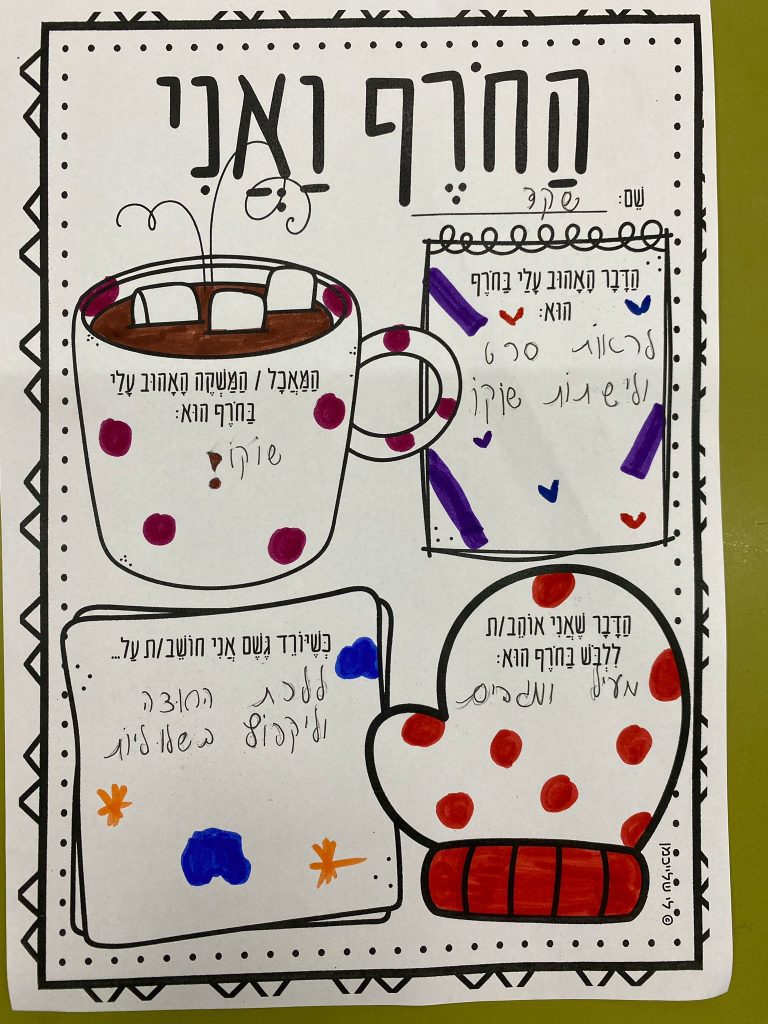 הַחֹרֶף וַאֲנִי
שֵׁם: שקד
הַדָּבָר הָאָהוּב עָלַי בַּחֹרֶף
הוּא:
לראות סרט
ולישתות שוקו
הַמַּאֲכָל / הַמַּשְׁקֶה הָאָהוּב עָלַי
בַּחֹרֶף הוּא:
שוקו!
הַדָּבָר שֶׁאֲנִי אוֹהֵב/ת
לִלְבֹּשׁ בַּחֹרֶף הוּא:
מעיל ומגפיים
כְּשֶׁיּוֹרֵד גֶּשֶׁם אֲנִי חוֹשֵׁב/ת עַל...
ללכת החוצה
וליקפוץ בשלוליות
© לי שלייכמן